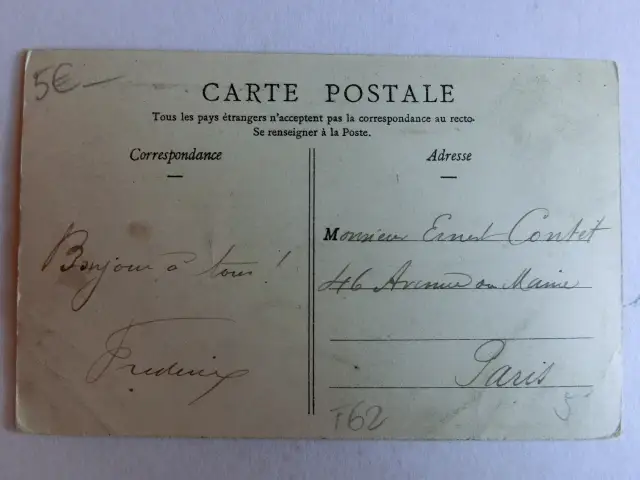 5€
CARTE POSTALE
Tous les pays étrangers n'acceptent pas la correspondance au recto-
Se renseigner à la Poste.
Correspondance
Adresse
Bonjour à tous !
Frederic
Monsieur Ernest Contet
46 Avenue du Maine
Paris
T62
5